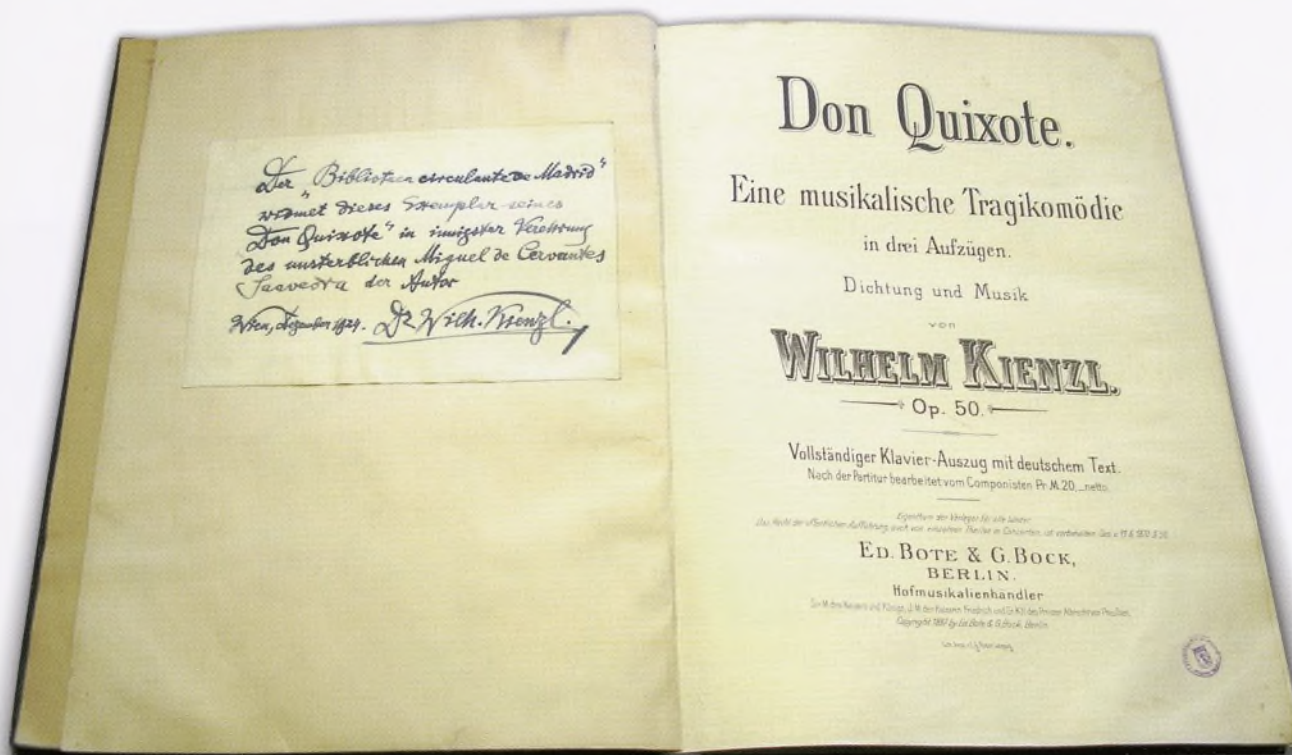 Der „Biblioteca circulante de Madrid“
widmet dieses Exemplar seines
„Don Quixote“ in innigster Verehrung
des unsterblichen Miguel de Cervantes
Saavedra der Autor
Wien, Dezember 1924. Dr. Wilh. Kienzl.
Don Quixote.
Eine musikalische Tragikomödie
in drei Aufzügen.
Dichtung und Musik
von
WILHELM KIENZL.
Op. 50.
Vollständiger Klavier-Auszug mit deutschem Text.
Nach der Partitur bearbeitet vom Componisten Pr. M. 20,_netto.
Eigenthum der Verleger für alle Länder.
Das Recht der öffentlichen Aufführung, auch von einzelnen Theilen in Concerten, ist vorbehalten.
ED. BOTE & G. BOCK,
BERLIN.
Hofmusikalienhändler
Copyright 1897 by Ed. Bote & G. Bock, Berlin.